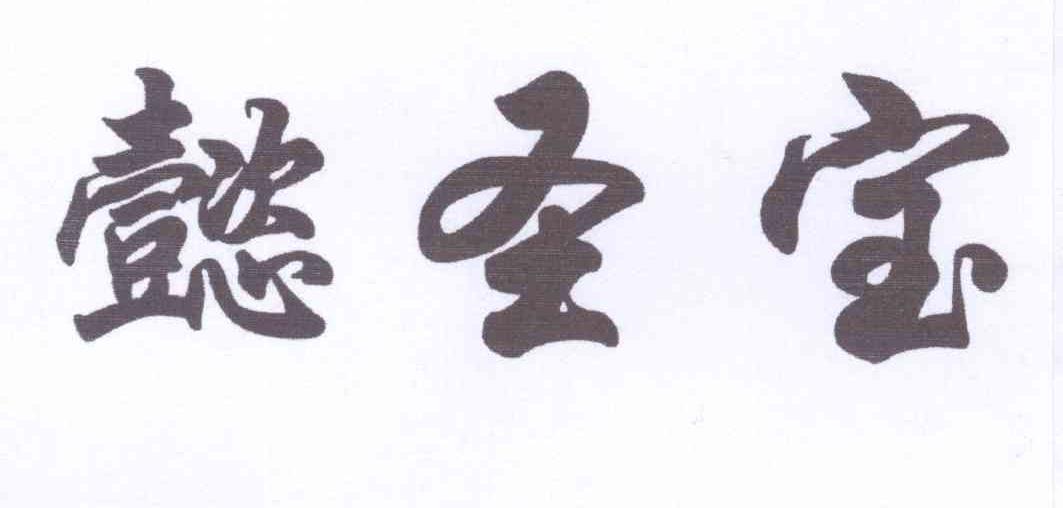 懿圣宝